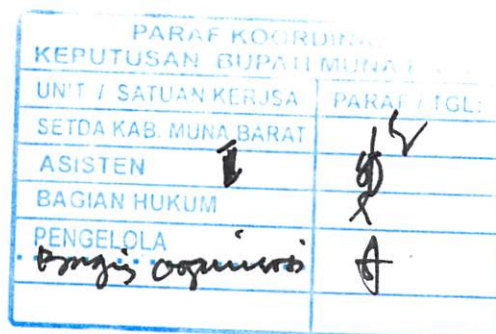 PARAF KOORDINA
KEPUTUSAN BUPATI MUNA
UNIT / SATUAN KERJSA PARAF / TGL:
SETDA KAB. MUNA BARAT
ASISTEN I
BAGIAN HUKUM
PENGELOLA